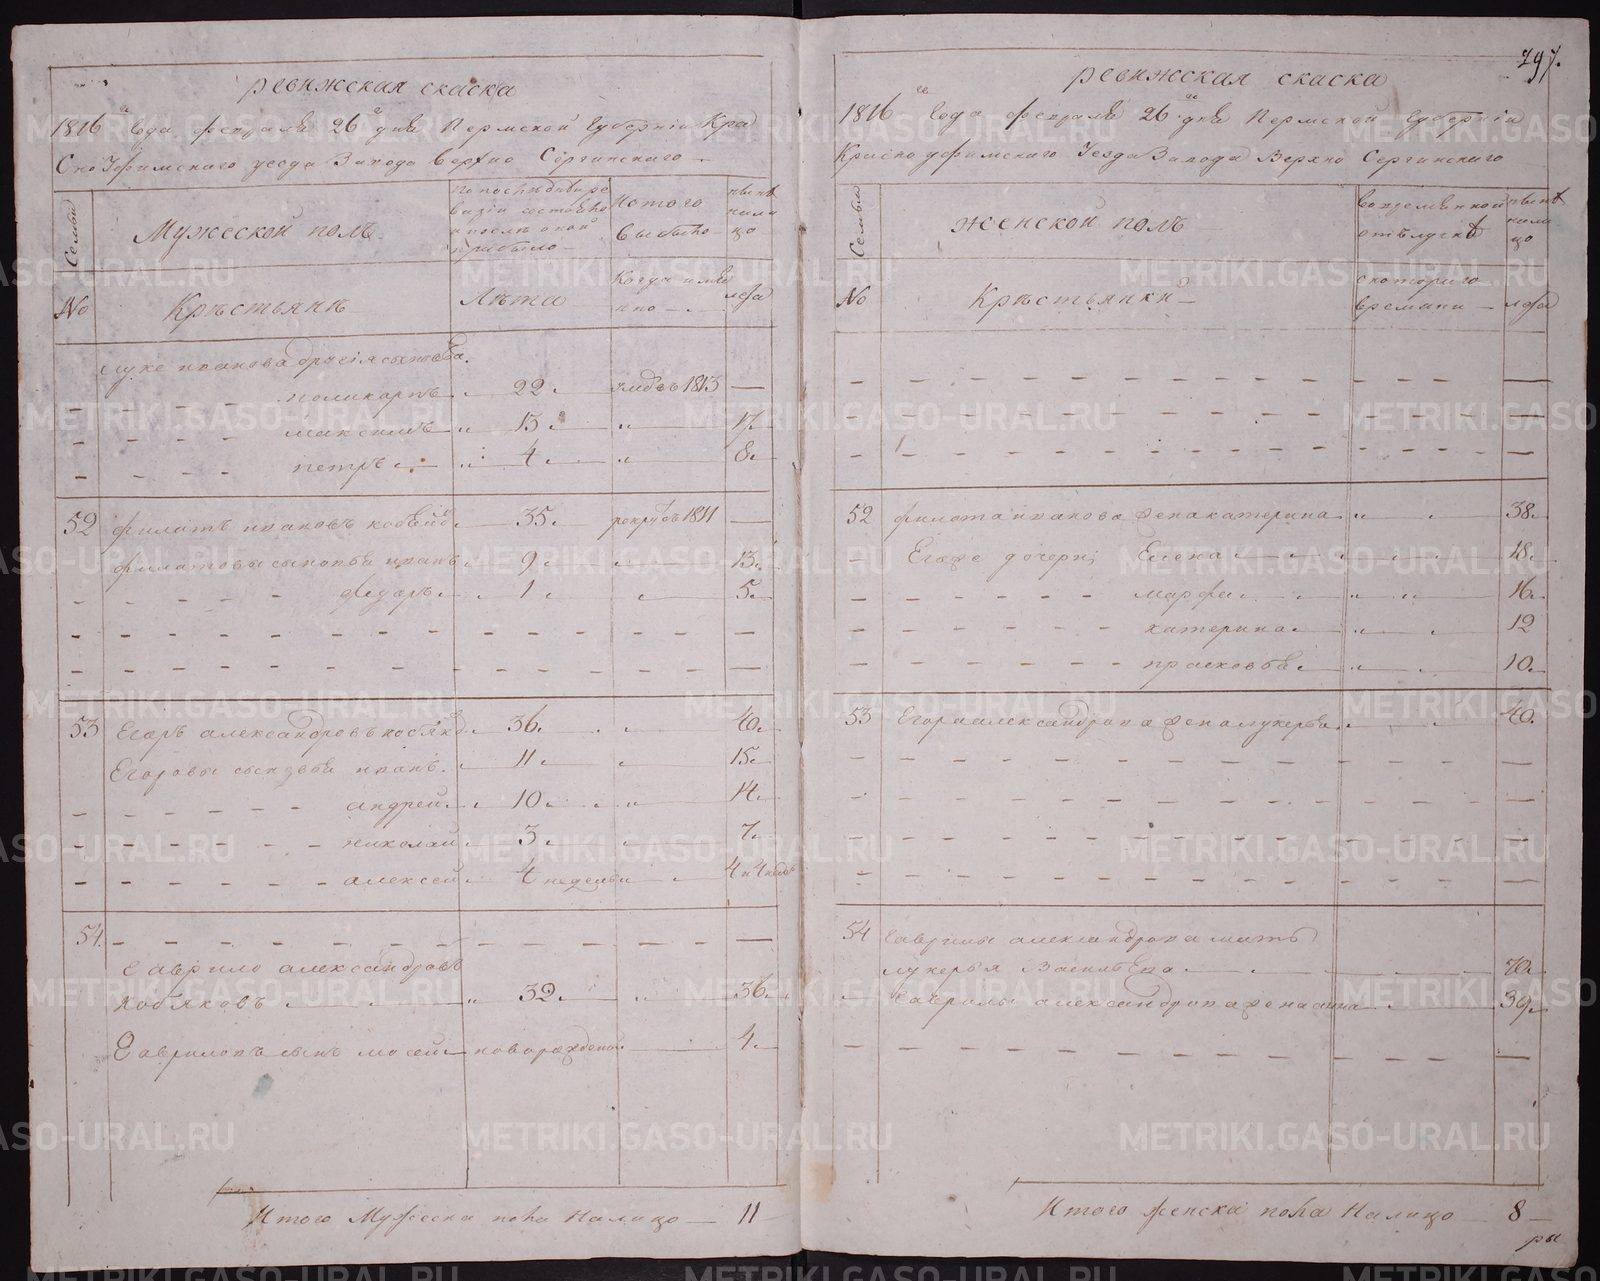 ревижская скаска
1816 года февраля 26 дня Пермской Губернiи Кра
сно Уфимскаго уезда Завода Верхно Сергинскаго
Семьи
Мужеской полъ
По последней ре
визiи состояло
и после оной
прибыло
Изтого
выбыло
ныне
нали
цо
No
Крестьяне
Лета
Когда имян
но
лета
луке иванова братiя
поликарпъ 22 1813 —
максимъ 13 17
петръ 4 8
52 филатъ ивановъ кобяков 35 рекрутъ 1811 —
филатовы сыновья иванъ 9 13
федоръ 1 5
53 Егоръ александровъ кобяков 36 40
Егоровы сыновья иванъ 11 15
андрей 10 14
николай 3 7
алексей 4 недельи 4 и 4 недел
54 — — —
Гаврило александровъ
Кобяковъ 32 36
Гавриловъ сынъ мосей новорожденой 4
Итого Мужеска пола Налицо — 11
797.
ревижская скаска
1816 года февраля 26 дня Пермской Губернiи
Красно уфимскаго Уезда Завода Верхно Сергинскаго
Семьи
женской полъ
Во временной
отълучке
ныне
нали
цо
No
Крестьянки
Скоторого
времани
лета
52 филата иванова жена катерина 38
Егоже дочери Елена 18
марфа 16
катерина 12
прасковья 10
53 Егора александрова жена лукерья 40
54 Гаврилы александрова мать
лукерья Васильева 70
Гаврилы александрова жена анна 39
Итого женска пола Налицо — 8
ры
METRIKI.GASO-URAL.RU